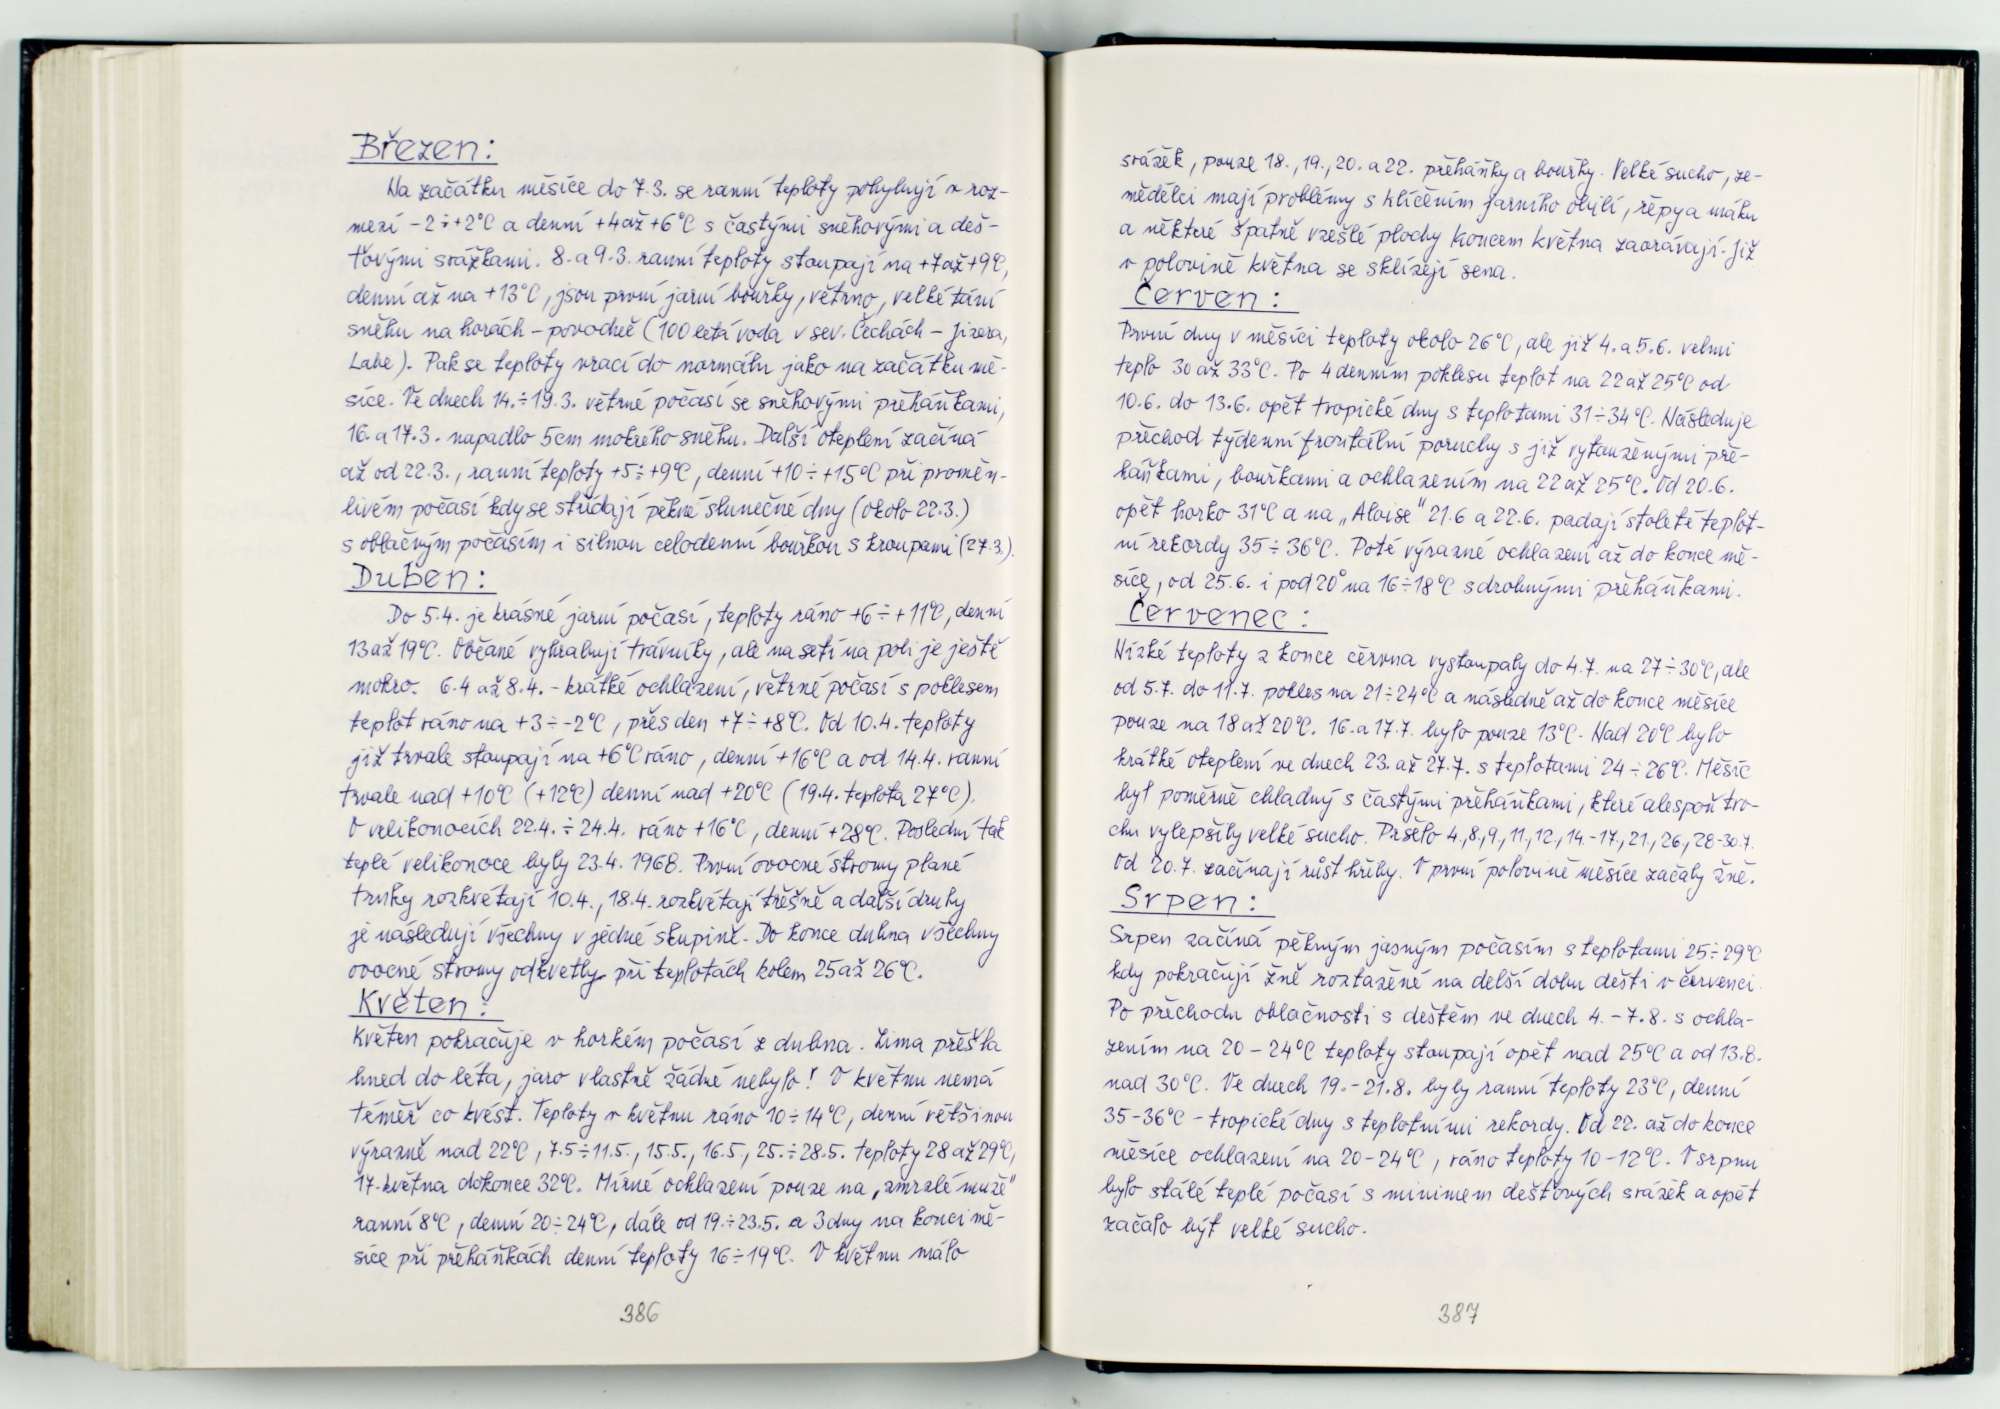 Březen:
Na začátku měsíce do 7.3. se ranní teploty pohybují v roz-
mezí -2÷+2°C a denní +4až+6°C s častými sněhovými a deš-
ťovými srážkami. 8. a 9.3. ranní teploty stoupají na +7až+9°C,
denní až na +13°C, jsou první jarní bouřky, větrno, velké tání
sněhu na horách - povodně (100 letá voda v sev. Čechách - Jizera,
Labe). Pak se teploty vrací do normálu jako na začátku mě-
síce. Ve dnech 14.÷19.3. větrné počasí se sněhovými přeháňkami,
16. a 17.3. napadlo 5cm mokrého sněhu. Další oteplení začíná
až od 22.3., ranní teploty +5÷+9°C, denní +10÷+15°C při proměn-
livém počasí kdy se střídají pěkné slunečné dny (okolo 22.3.)
s oblačným počasím i silnou celodenní bouřkou s kroupami (27.3.).
Duben:
Do 5.4. je krásné jarní počasí, teploty ráno +6÷+11°C, denní
13až 19°C. Občané vyhrabují trávníky, ale na setí na poli je ještě
mokro. 6.4 až 8.4. - krátké ochlazení, větrné počasí s poklesem
teplot ráno na +3÷-2°C, přes den +7÷+8°C. Od 10.4. teploty
již trvale stoupají na +6°C ráno, denní +16°C a od 14.4. ranní
trvale nad +10°C (+12°C) denní nad +20°C (19.4. teplota 27°C).
O velikonocích 22.4.÷24.4. ráno +16°C, denní +28°C. Poslední tak
teplé velikonoce byly 23.4. 1968. První ovocné stromy plané
trnky rozkvétají 10.4., 18.4. rozkvétají třešně a další druhy
je následují všechny v jedné skupině. Do konce dubna všechny
ovocné stromy odkvetly při teplotách kolem 25až 26°C.
Květen:
Květen pokračuje v horkém počasí z dubna. Zima přešla
hned do léta, jaro vlastně žádné nebylo! V květnu nemá
téměř co kvést. Teploty v květnu ráno 10÷14°C, denní většinou
výrazně nad 22°C, 7.5÷11.5., 15.5., 16.5., 25.÷28.5. teploty 28až29°C,
17. května dokonce 32°C. Mírné ochlazení pouze na „zmrzlé muže"
ranní 8°C, denní 20÷24°C, dále od 19.÷23.5. a 3dny na konci mě-
síce při přeháňkách denní teploty 16÷19°C. V květnu málo
386
srážek, pouze 18., 19., 20. a 22. přeháňky a bouřky. Velké sucho, ze-
mědělci mají problémy s klíčením jarního obilí, řepy a máku
a některé špatně vzešlé plochy koncem května zaorávají. Již
v polovině května se sklízejí sena.
Červen:
První dny v měsíci teploty okolo 26°C, ale již 4. a 5.6. velmi
teplo 30až 33°C. Po 4denním poklesu teplot na 22až 25°C od
10.6. do 13.6. opět tropické dny s teplotami 31÷34°C. Následuje
přechod týdenní frontální poruchy s již vytouženými pře-
háňkami, bouřkami a ochlazením na 22až 25°C. Od 20.6.
opět horko 31°C a na „Aloise" 21.6 a 22.6. padají stoleté teplot-
ní rekordy 35÷36°C. Poté výrazné ochlazení až do konce mě-
síce, od 25.6. i pod 20° na 16÷18°C s drobnými přeháňkami.
Červenec:
Nízké teploty z konce června vystoupaly do 4.7. na 27÷30°C, ale
od 5.7. do 11.7. pokles na 21÷24°C a následně až do konce měsíce
pouze na 18až 20°C. 16. a 17.7. bylo pouze 13°C. Nad 20°C bylo
krátké oteplení ve dnech 23. až 27.7. s teplotami 24÷26°C. Měsíc
byl poměrně chladný s častými přeháňkami, které alespoň tro-
chu vylepšily velké sucho. Pršelo 4.,8.,9.,11.,12.,14.-17.,21.,26.,28-30.7.
Od 20.7. začínají růst hřiby. V první polovině měsíce začaly žně.
Srpen:
Srpen začíná pěkným jasným počasím s teplotami 25÷29°C
kdy pokračují žně roztažené na delší dobu dešti v červenci.
Po přechodu oblačnosti s deštěm ve dnech 4.-7.8. s ochla-
zením na 20-24°C teploty stoupají opět nad 25°C a od 13.8.
nad 30°C. Ve dnech 19.-21.8. byly ranní teploty 23°C, denní
35-36°C - tropické dny s teplotními rekordy. Od 22. až do konce
měsíce ochlazení na 20-24°C, ráno teploty 10-12°C. V srpnu
bylo stálé teplé počasí s minimem dešťových srážek a opět
začalo být velké sucho.
387